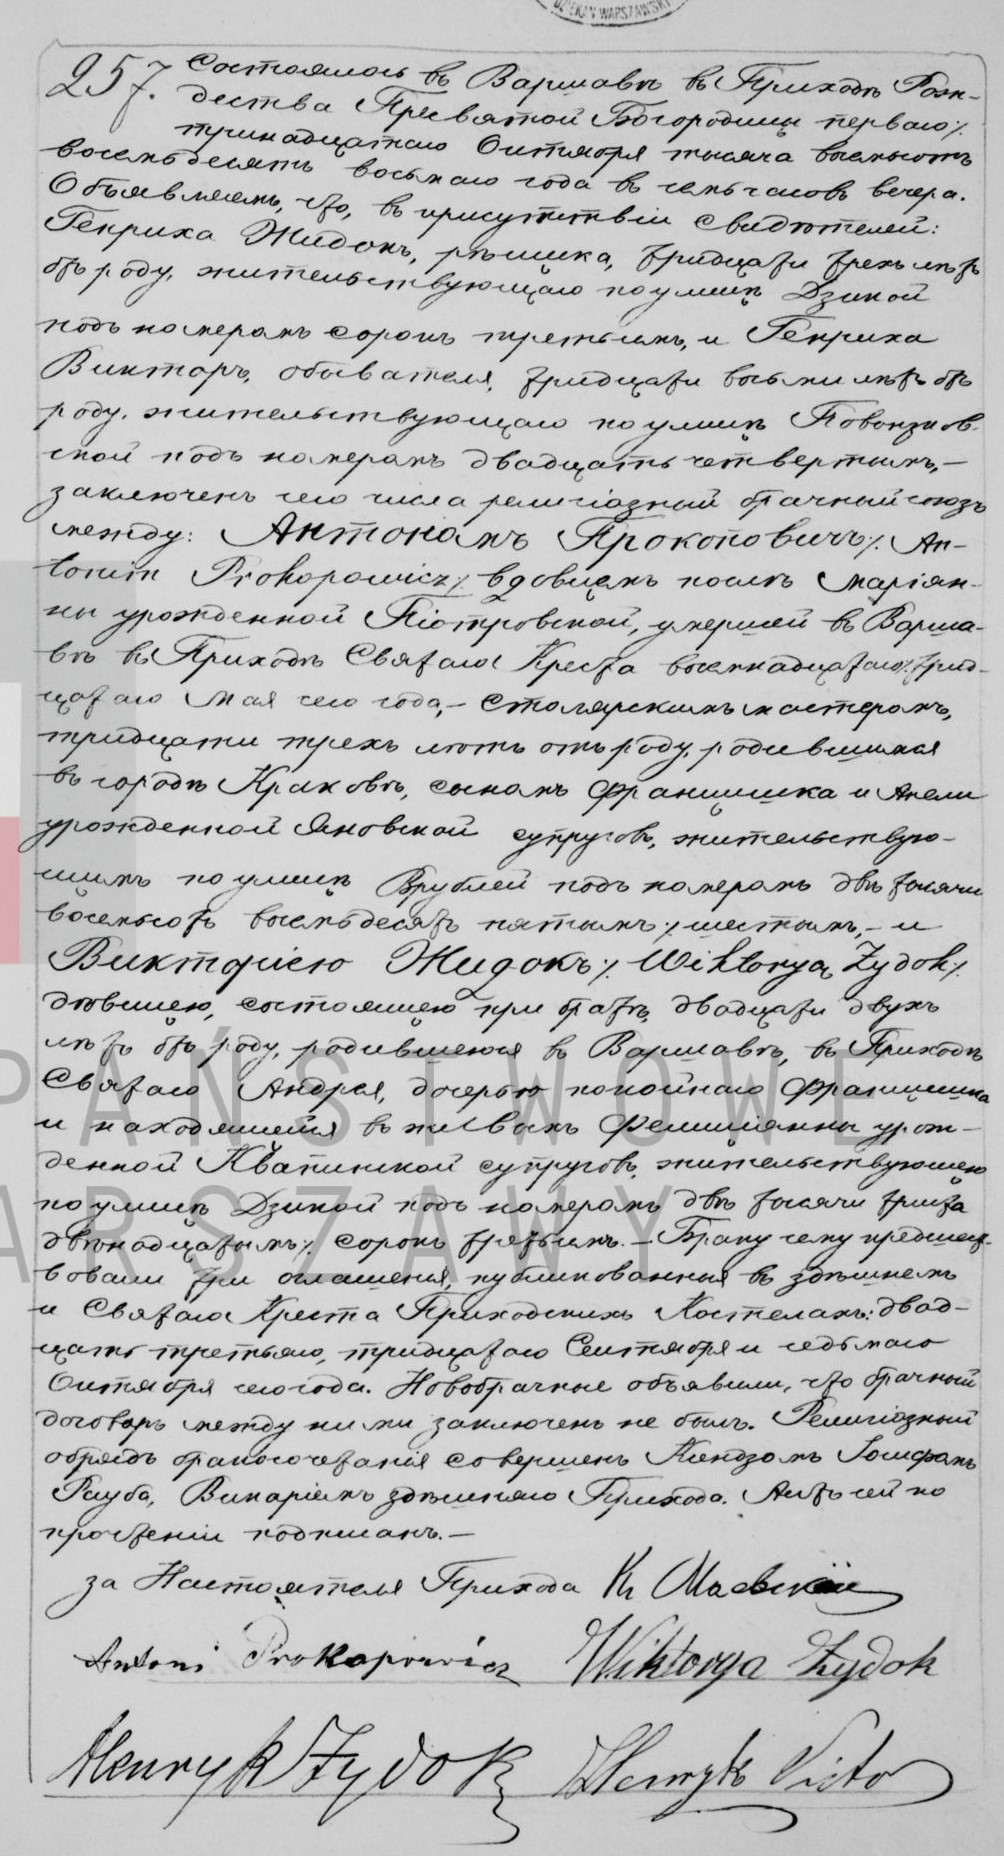 DZIEKAN WARSZAWSKI
257. Состоялось въ Варшавѣ въ Приходѣ Рож-
дества Пресвятой Богородицы перваго /
тринадцатаго Октября тысяча восемьсотъ
восемьдесятъ восьмаго года въ семь часовъ вечера.
Объявляемъ, что, въ присутствіи свидѣтелей:
Генриха Жидокъ, рѣщика, тридцати трехъ лѣтъ
отъ роду, жительствующаго по улицѣ Дзикой
подъ номеромъ сорокъ третьимъ, и Генриха
Викторъ, обывателя, тридцати восьми лѣтъ отъ
роду, жительствующаго по улицѣ Повонзков-
ской подъ номеромъ двадцать четвертымъ, –
заключенъ сего числа религіозный брачный союзъ
между: Антономъ Прокоповичъ /. An-
tonim Prokopowicz /. вдовцемъ послѣ Маріян-
ны урожденной Піотровской, умершей въ Варша-
вѣ въ Приходѣ Святаго Креста восемнадцатаго / трид-
цатаго Мая сего года, – столярскимъ мастеромъ,
тридцати трехъ лѣтъ отъ роду, родившимся
въ городѣ Краковѣ, сыномъ Францишка и Анели
урожденной Яновской супруговъ, жительствую-
щимъ по улицѣ Врублей подъ номеромъ двѣ тысячи
восемьсотъ восемьдесятъ пятымъ / шестымъ, – и
Викторіею Жидокъ /. Wiktoryą Żydok /.
дѣвицею, состоящею при братѣ, двадцати двухъ
лѣтъ отъ роду, родившеюся въ Варшавѣ, въ Приходѣ
Святаго Андрея, дочерью покойнаго Францишка
и находящейся въ живыхъ Фелиціянны урож-
денной Квапинской супруговъ, жительствующею
по улицѣ Дзикой подъ номеромъ двѣ тысячи триста
двѣнадцатымъ /. сорокъ третьимъ. – Браку сему предшест-
вовали три оглашенія, публикованныя въ здѣшнемъ
и Святаго Креста Приходскихъ Костелахъ: двад-
цать третьяго, тридцатаго Сентября и седьмаго
Октября сего года. Новобрачные объявили, что брачный
договоръ между ними заключенъ не былъ. Религіозный
обрядъ бракосочетанія совершенъ Ксендзомъ Іосифомъ
Рауба, Викаріемъ здѣшняго Прихода. Актъ сей по
прочтеніи подписанъ. –
за Настоятеля Прихода Кс Маевскій
Antoni Prokopowicz Wiktorya Żydok
Henryk Żydok Henryk Victor
PAŃSTWOWE
ARSZAWY